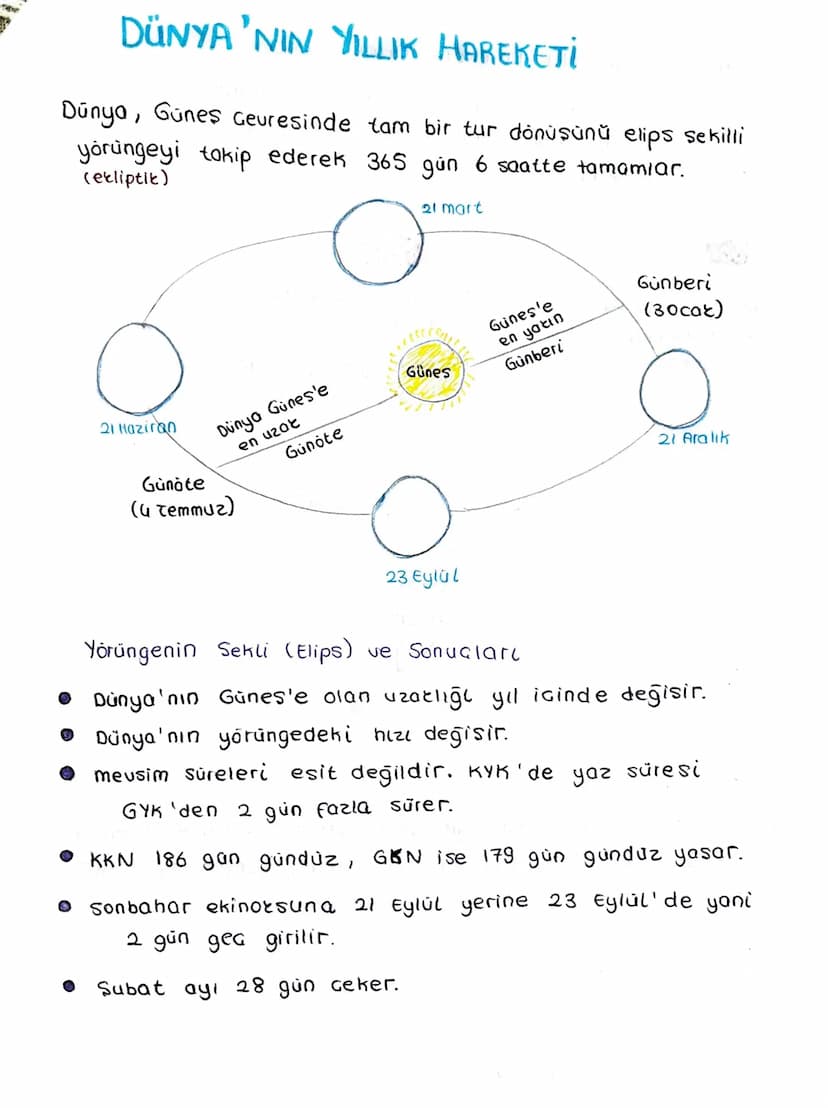 DÜNYA'NIN YILLIK HAREKETİ
Dünya, Güneş Çevresinde tam bir tur dönüşünü elips şekilli
yörüngeyi takip ederek 365 gün 6 saatte tamamlar.
(ekliptik)
21 mart
Günberi
(3 Ocak)
Güneş'e
en yakın
Günberi
Güneş
Dünya Güneş'e
en uzak
Günöte
21 Haziran
21 Aralık
Günöte
(4 Temmuz)
23 Eylül
Yörüngenin Şekli (Elips) ve Sonuçları
• Dünya'nın Güneş'e olan uzaklığı yıl içinde değişir.
• Dünya'nın yörüngedeki hızı değişir.
• mevsim süreleri eşit değildir. KYK'de yaz süresi
GYK'den 2 gün fazla sürer.
• KKN 186 gün gündüz, GKN ise 179 gün gündüz yaşar.
• Sonbahar ekinoksuna 21 Eylül yerine 23 Eylül'de yani
2 gün geç girilir.
• Şubat ayı 28 gün çeker.